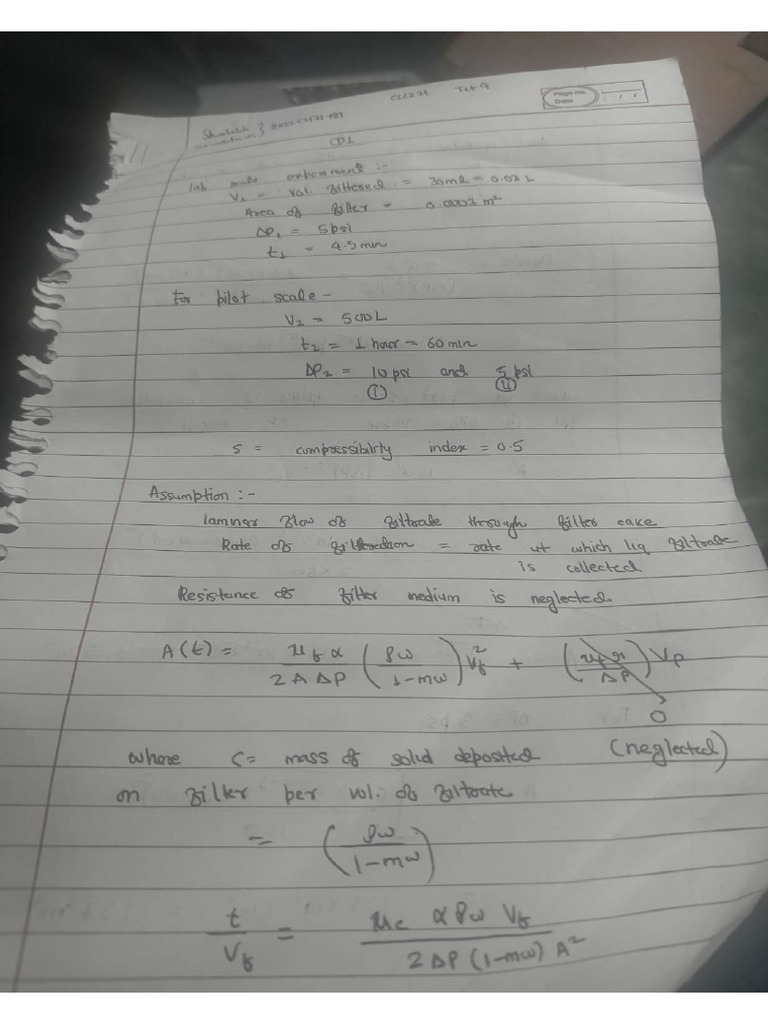 CLL271 Tut 9
Page No.
Date
Q1
lab scale experiment :-
V₁ = Vol. filtered = 30ml = 0.03 L
Area of filter = 0.0003 m²
ΔP₁ = 5 psi
t₁ = 4.5 min
For pilot scale -
V₂ = 500 L
t₂ = 1 hour = 60 min
ΔP₂ = 10 psi and 5 psi
① ②
s = compressibility index = 0.5
Assumption :-
laminar flow of filtrate through filter cake
Rate of filtration = rate at which liq filtrate
is collected
Resistance of filter medium is neglected
A(t) = μf α / 2 A ΔP (ρω / 1-mω) Vf² + (μf r / ΔP) Vf
0
where C= mass of solid deposited (neglected)
on filter per vol. of filtrate
= (ρω / 1-mω)
t / Vf = μc α ρω Vf / 2 ΔP (1-mω) A²